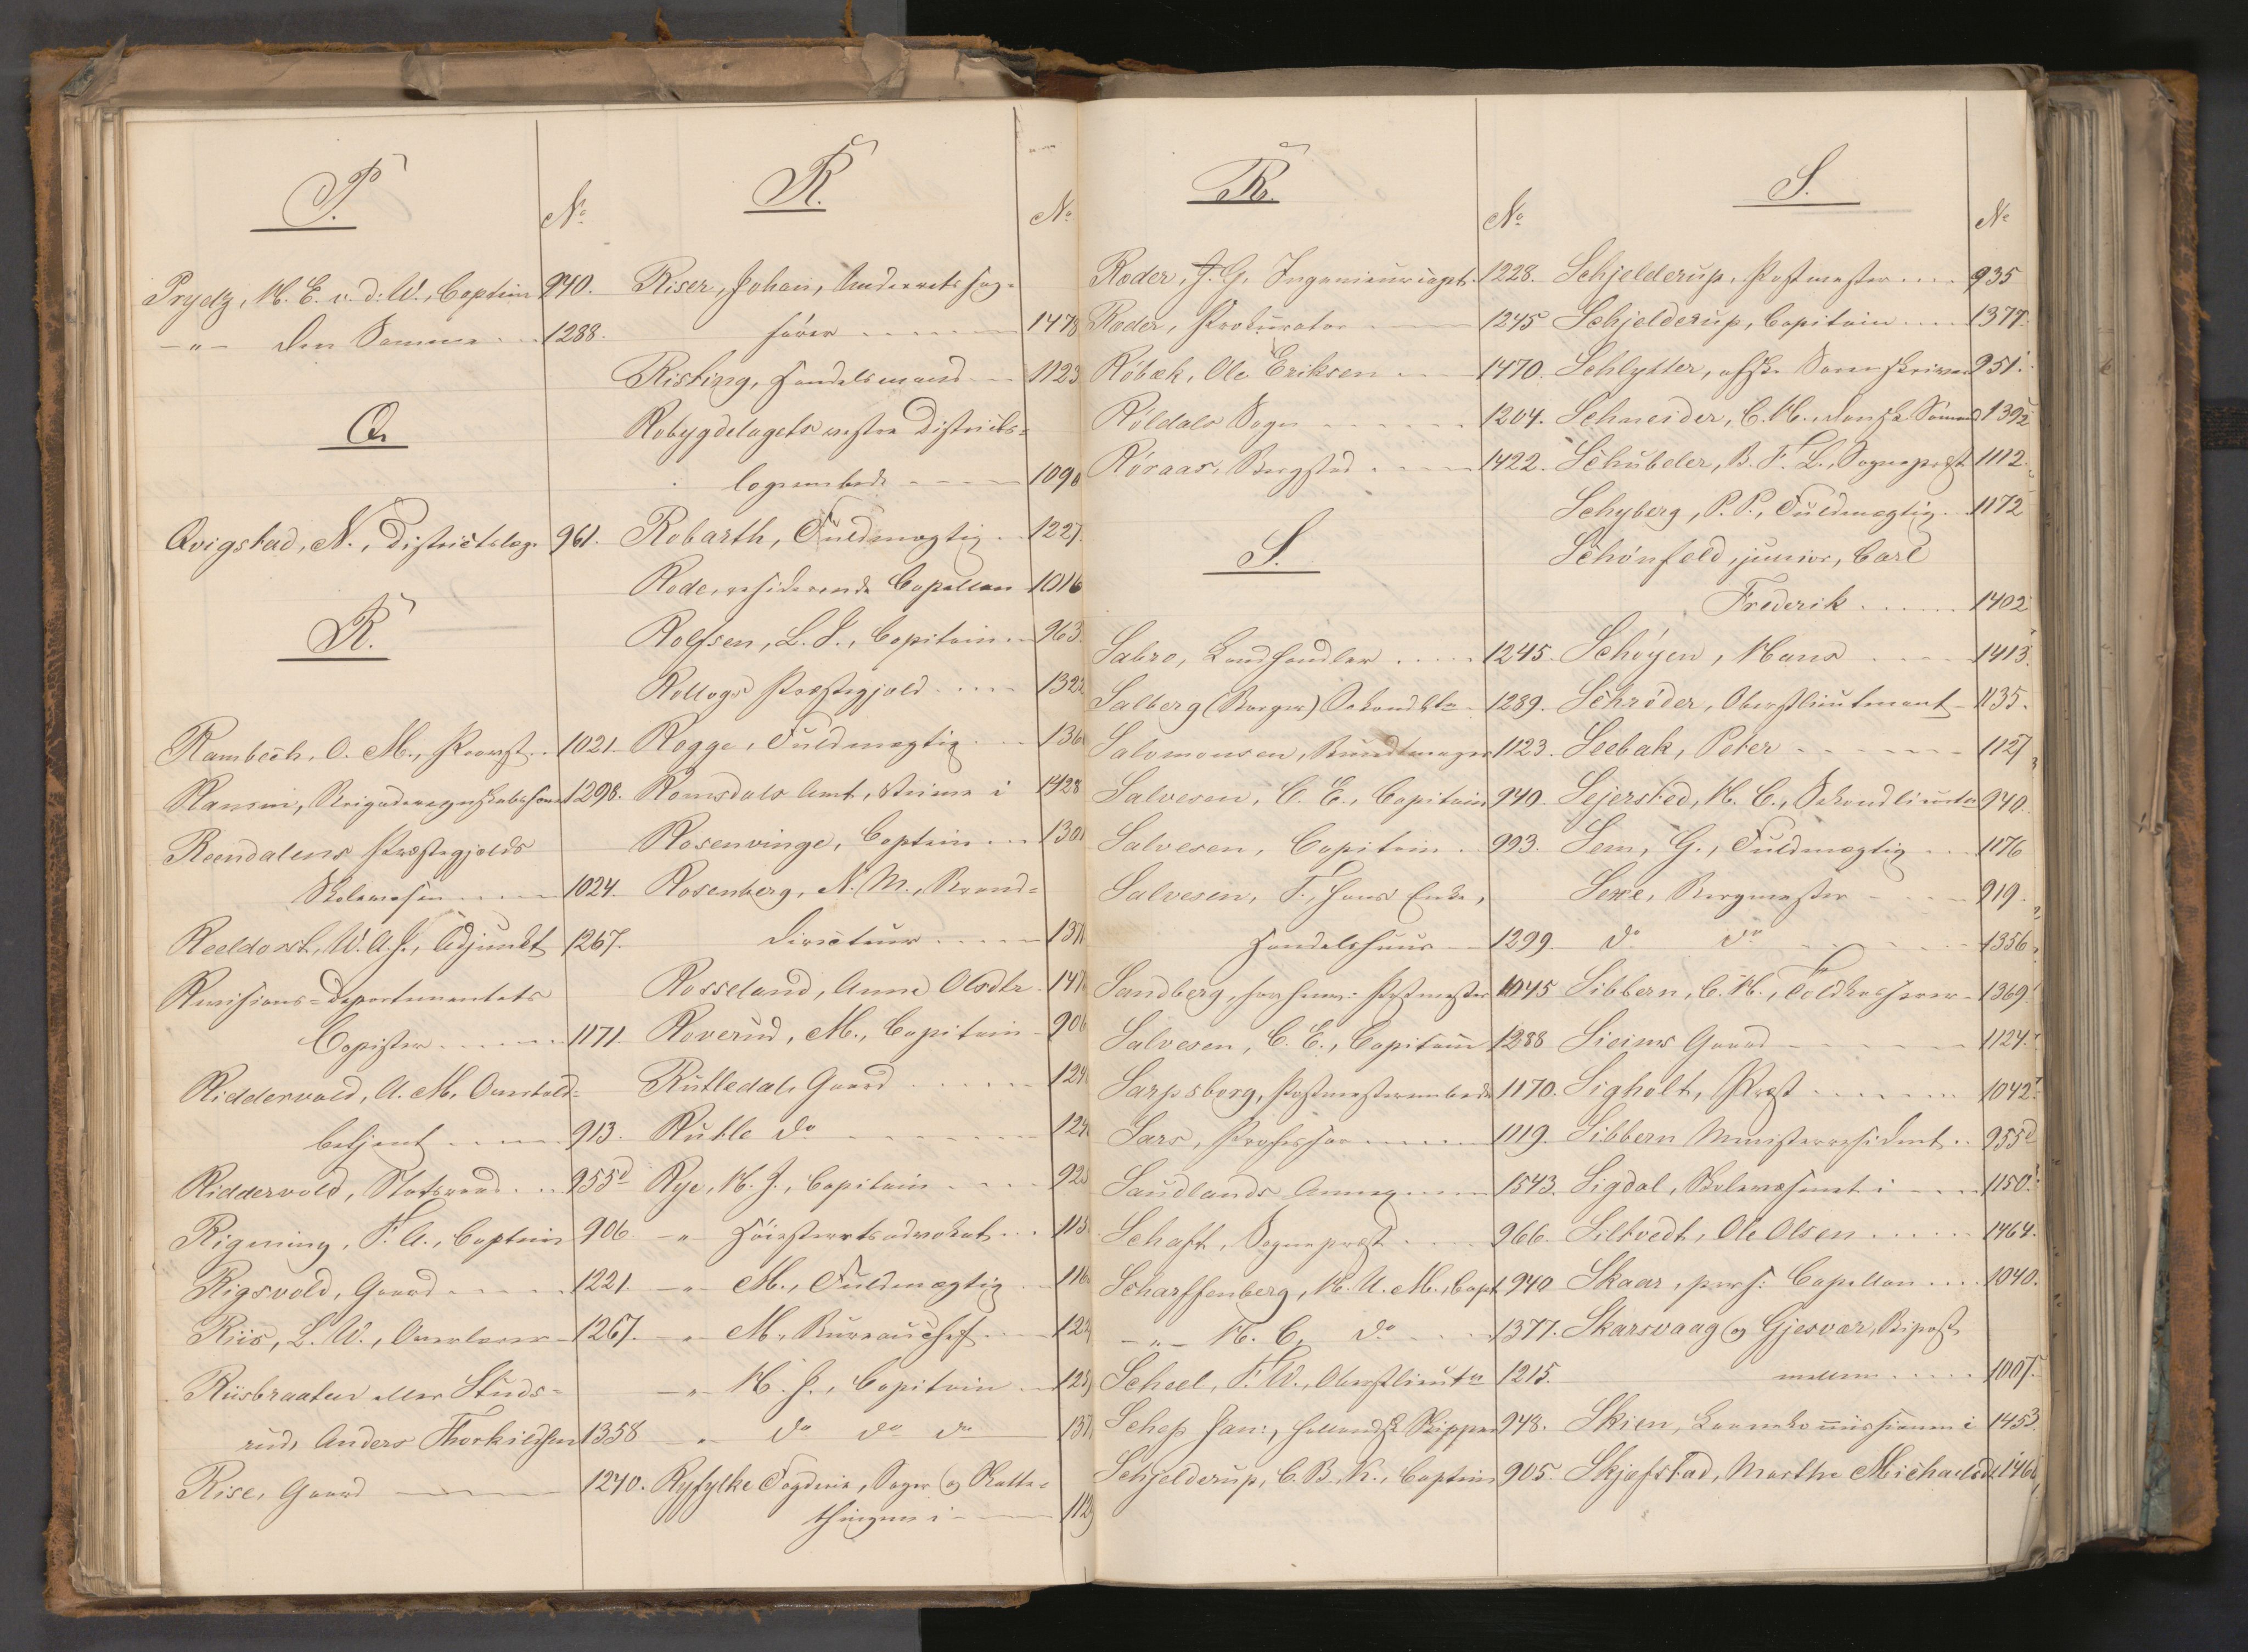 P.
No
Prydz, M. E. v. d. W., Captein 940.
-"- den Samme 1288.
Q
Qvigstad, N., Districtslæge 961.
R.
Rambech, O. M., Provst 1021.
1298.
Reendalens Præstegjelds
Skolevæsen 1024.
W. A. J., Adjunkt 1267.
Revisions-Departementets
Copister 1171.
Riddervold, A. M. Overtold-
betjent 913.
Riddervold, Statsraad 955d
F. A., Captein 906.
Rigsvold, Gaard 1221.
Riis, L. W., Overlærer 1267.
Riisbraaten eller Studs-
rud, Anders Thorkildsen 1358
Rise, Gaard 1240.
R.
No
Riser, Johan, Underretssag-
fører 1478
Risting, Handelsmand 1123
Robygdelagets vestre Districts-
lægeembede 1090
Robarth, Fuldmægtig 1227.
Rode, residerende Capellan 1016
Rolfsen, L. J., Capitain 963.
Rollags Præstegjeld 1322
Rogge, Fuldmægtig
Romsdals Amt, i 1428
Rosenvinge, Captein
Rosenberg, N. M., Brand-
directeur
Rosseland, Anne Olsdtr
Roverud, M., Capitain
Rutledals Gaard
Rutle do
Rye, H. J., Capitain
-"- Høiesteretsadvokat
-"- M., Fuldmægtig
-"- M. Bureauchef
-"- H. J., Capitain
-"- do do do
Ryfylke Fogderie, Sager og Skatte-
thingene i
R.
No
Roder, J. G. Ingenieurcapt. 1228.
Roder, Prokurator 1245
Röbæk, Ole Eriksen 1470.
Röldals Sogn 1204.
Röraas, Bergstad 1422.
S.
Sabro, Landhandler 1245.
Salberg (Borger) Sekondlts 1289.
Salomonsen, Bundtmager 1123.
Salvesen, C. E., Capitain 940.
Salvesen, Capitain 993.
Salvesen, T., hans Enke,
Handelshuus 1299.
Sandberg, Postmester 1045
Salvesen, C. E., Capitain 1288
Sarpsborg, Postmesterembede 1170.
Sars, Professor 1119.
Saudlands Annex 1543.
Schaft, Sognepræst 966.
Scharffenberg, H. U. M., Capt 940
-"- H. C. do 1377.
Scheel, F. W., Oberstlieutn 1215.
Schep Jan:, hollandsk Skipper 948.
Schjelderup, C. B. K., Captein 905.
S.
No
Schjelderup, Postmester 935
Schjelderup, Capitain 1377.
Schlytter, afsk. Sorenskriver 951.
Schneider, C. H., dansk Sømand 1392
Schübeler, B. F. L., Sognepræst 1112.
Schyberg, P. P., Fuldmægtig 1172
Schönfeld, junior, Carl
Frederik 1402
Schöyen, Hans 1413.
Schröder, Oberstlieutenant 1135.
Seebak, Peter 1127
Sejersted, H. C., Sekondlieutn 940.
Sem, G., Fuldmægtig 1176
Sexe, Bergmester 919.
do do 1356.
Sibbern, C. H., Toldkasserer 1369.
Sieims Gaard 1124.
Sigholt, Præst 1042.
Sibbern Ministerresident 955d
Sigdal, Skolevæsenet i 1150.
Siltvedt, Ole Olsen 1464.
Skaar, pers: Capellan 1040.
Skarsvaag og Gjesvær, Bipost
mellem 1007.
Skien, Lærerkommissionen i 1453.
Skjefstad, Marthe Michaelsdt 1466